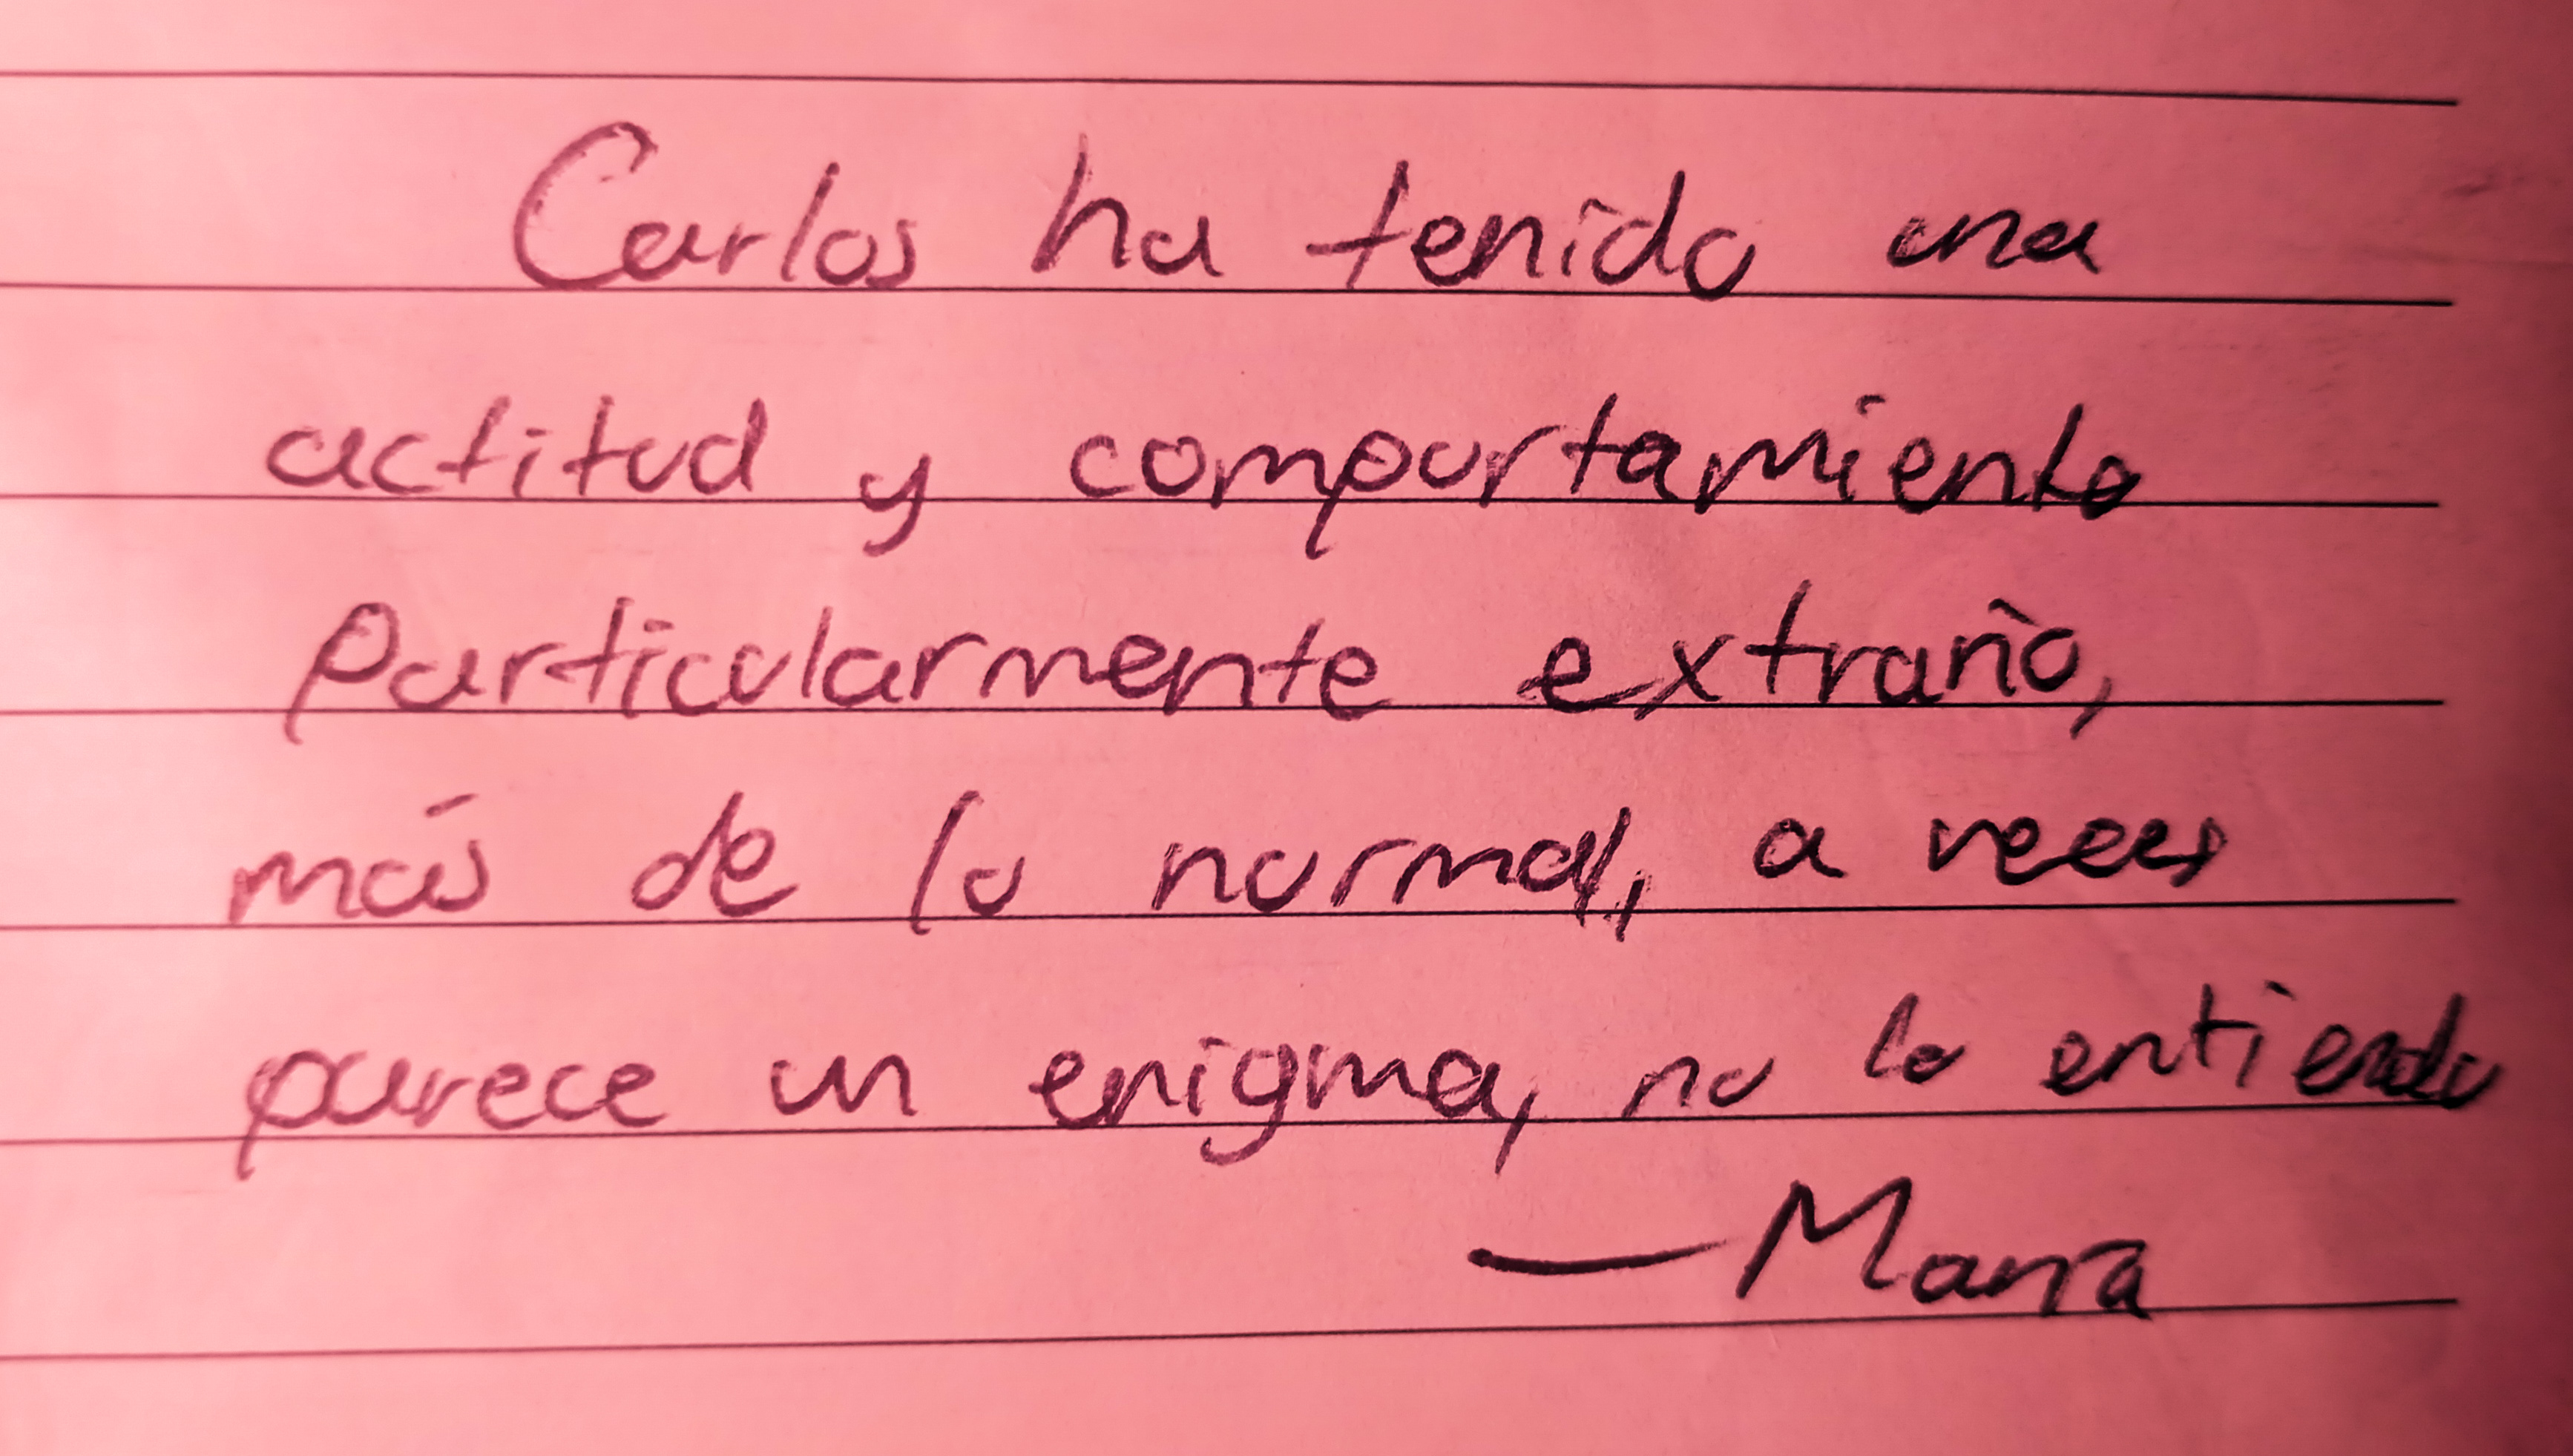 Carlos ha tenido una
actitud y comportamiento
particularmente extraño,
más de lo normal, a veces
parece un enigma, no lo entiendo
— María